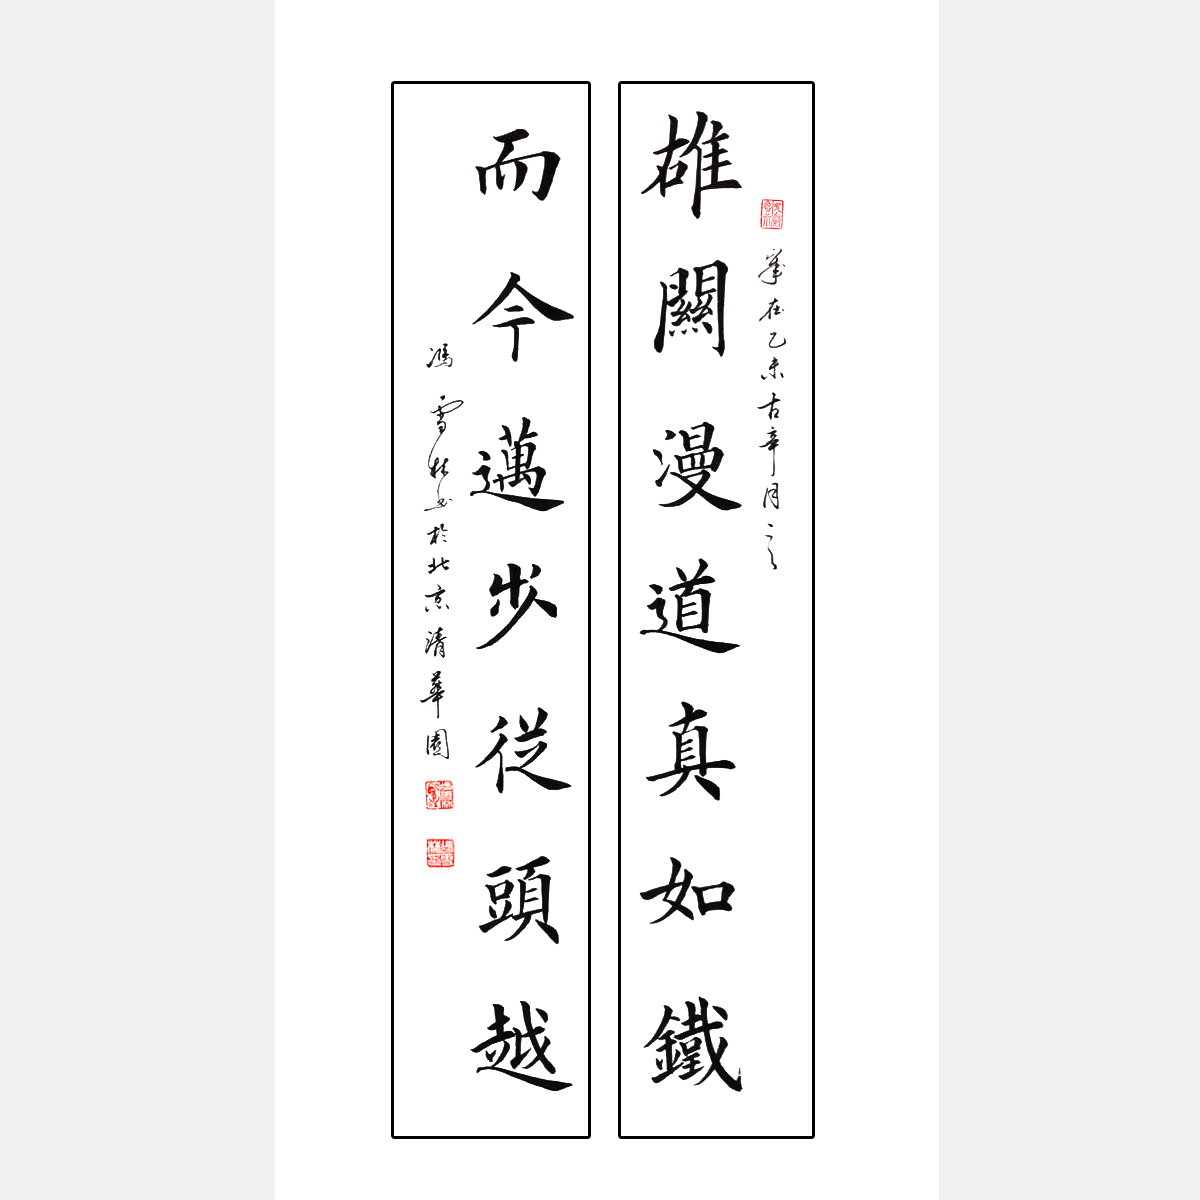 雄關漫道真如鐵
歲在乙未古辛月之
而今邁步從頭越
馮雪林书於北京清華園